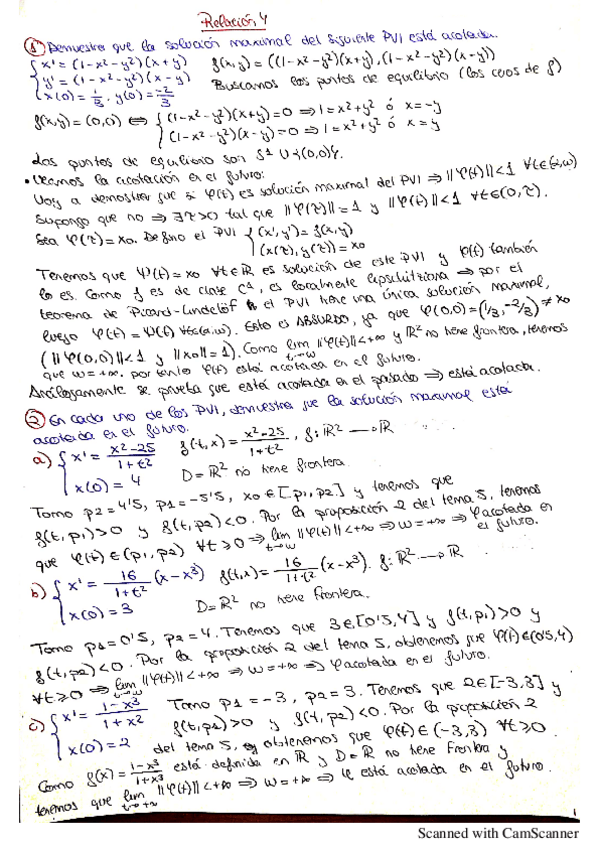 Relación 4
① Demuestra que la solución maximal del siguiente PVI está acotada.
{ x' = (1-x²-y²)(x+y)   f(x,y) = ((1-x²-y²)(x+y), (1-x²-y²)(x-y))
y' = (1-x²-y²)(x-y)   Buscamos los puntos de equilibrio (los ceros de f)
x(0) = 1/3, y(0) = -2/3
f(x,y) = (0,0) ⟺ { (1-x²-y²)(x+y) = 0 ⟹ 1 = x²+y² ó x = -y
(1-x²-y²)(x-y) = 0 ⟹ 1 = x²+y² ó x = y
Los puntos de equilibrio son S¹ ∪ {(0,0)}.
• Veamos la acotación en el futuro:
Voy a demostrar que si φ(t) es solución maximal del PVI ⟹ ||φ(t)|| < 1 ∀t∈(α,ω)
Supongo que no ⟹ ∃τ>0 tal que ||φ(τ)|| = 1 y ||φ(t)|| < 1 ∀t∈(0,τ).
Sea φ(τ) = x₀. Defino el PVI { (x',y') = f(x,y)
(x(τ), y(τ)) = x₀
Tenemos que ψ(t) = x₀ ∀t∈ℝ es solución de este PVI y φ(t) también
lo es. Como f es de clase C¹, es localmente lipschitziana ⟹ por el
teorema de Picard-Lindelöf el PVI tiene una única solución maximal,
luego φ(t) = ψ(t) ∀t∈(α,ω). Esto es ABSURDO, ya que φ(0,0) = (1/3, -2/3) ≠ x₀
(||φ(0,0)|| < 1 y ||x₀|| = 1). Como lim t→ω ||φ(t)|| < +∞ y ℝ² no tiene frontera, tenemos
que ω = +∞, por tanto φ(t) está acotada en el futuro.
Análogamente se prueba que está acotada en el pasado ⟹ está acotada.
② En cada uno de los PVI, demuestra que la solución maximal está
acotada en el futuro.
a) { x' = x²-25 / 1+t²   f(t,x) = x²-25 / 1+t², f: ℝ² → ℝ
x(0) = 4   D = ℝ² no tiene frontera.
Tomo p2 = 4'5, p1 = -5'5, x₀ ∈ [p₁, p₂] y tenemos que
f(t,p₁) > 0 y f(t,p₂) < 0. Por la proposición 2 del tema 5, tenemos
que φ(t) ∈ (p₁, p₂) ∀t ≥ 0 ⟹ lim t→ω ||φ(t)|| < +∞ ⟹ ω = +∞ ⟹ φ acotada en
el futuro.
b) { x' = 16 / 1+t² (x-x³)   f(t,x) = 16 / 1+t² (x-x³). f: ℝ² → ℝ
x(0) = 3   D = ℝ² no tiene frontera.
Tomo p1 = 0'5, p2 = 4. Tenemos que 3 ∈ [0'5,4] y f(t,p₁) > 0 y
f(t,p2) < 0. Por la proposición 2 del tema 5, obtenemos que φ(t) ∈ (0'5,4)
∀t ≥ 0 ⟹ lim t→ω ||φ(t)|| < +∞ ⟹ ω = +∞ ⟹ φ acotada en el futuro.
c) { x' = 1-x³ / 1+x²   Tomo p1 = -3, p2 = 3. Tenemos que 2 ∈ [-3,3] y
f(t,p1) > 0 y f(t,p2) < 0. Por la proposición 2
x(0) = 2   del tema 5, obtenemos que φ(t) ∈ (-3,3) ∀t ≥ 0.
Como f(x) = 1-x³ / 1+x² está definida en ℝ y D = ℝ no tiene frontera y
tenemos que lim t→+∞ ||φ(t)|| < +∞ ⟹ ω = +∞ ⟹ φ está acotada en el futuro.
1
Scanned with CamScanner